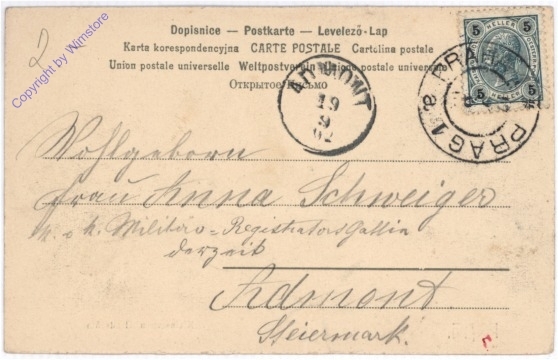 2
Copyright by Wimstore
Dopisnice — Postkarte — Levelező-Lap
Karta korespondencyjna CARTE POSTALE Cartolina postale
Union postale universelle Weltpostverein Unione postale universale
Открытое письмо
5 HELLER 5
5 5
ADMONT
19
9
02
PRAG 1 PRAHA
Wohlgeboren
Frau Anna Schweiger
k. u. k. Militär-Registrators Gattin
derzeit
Admont
Steiermark.